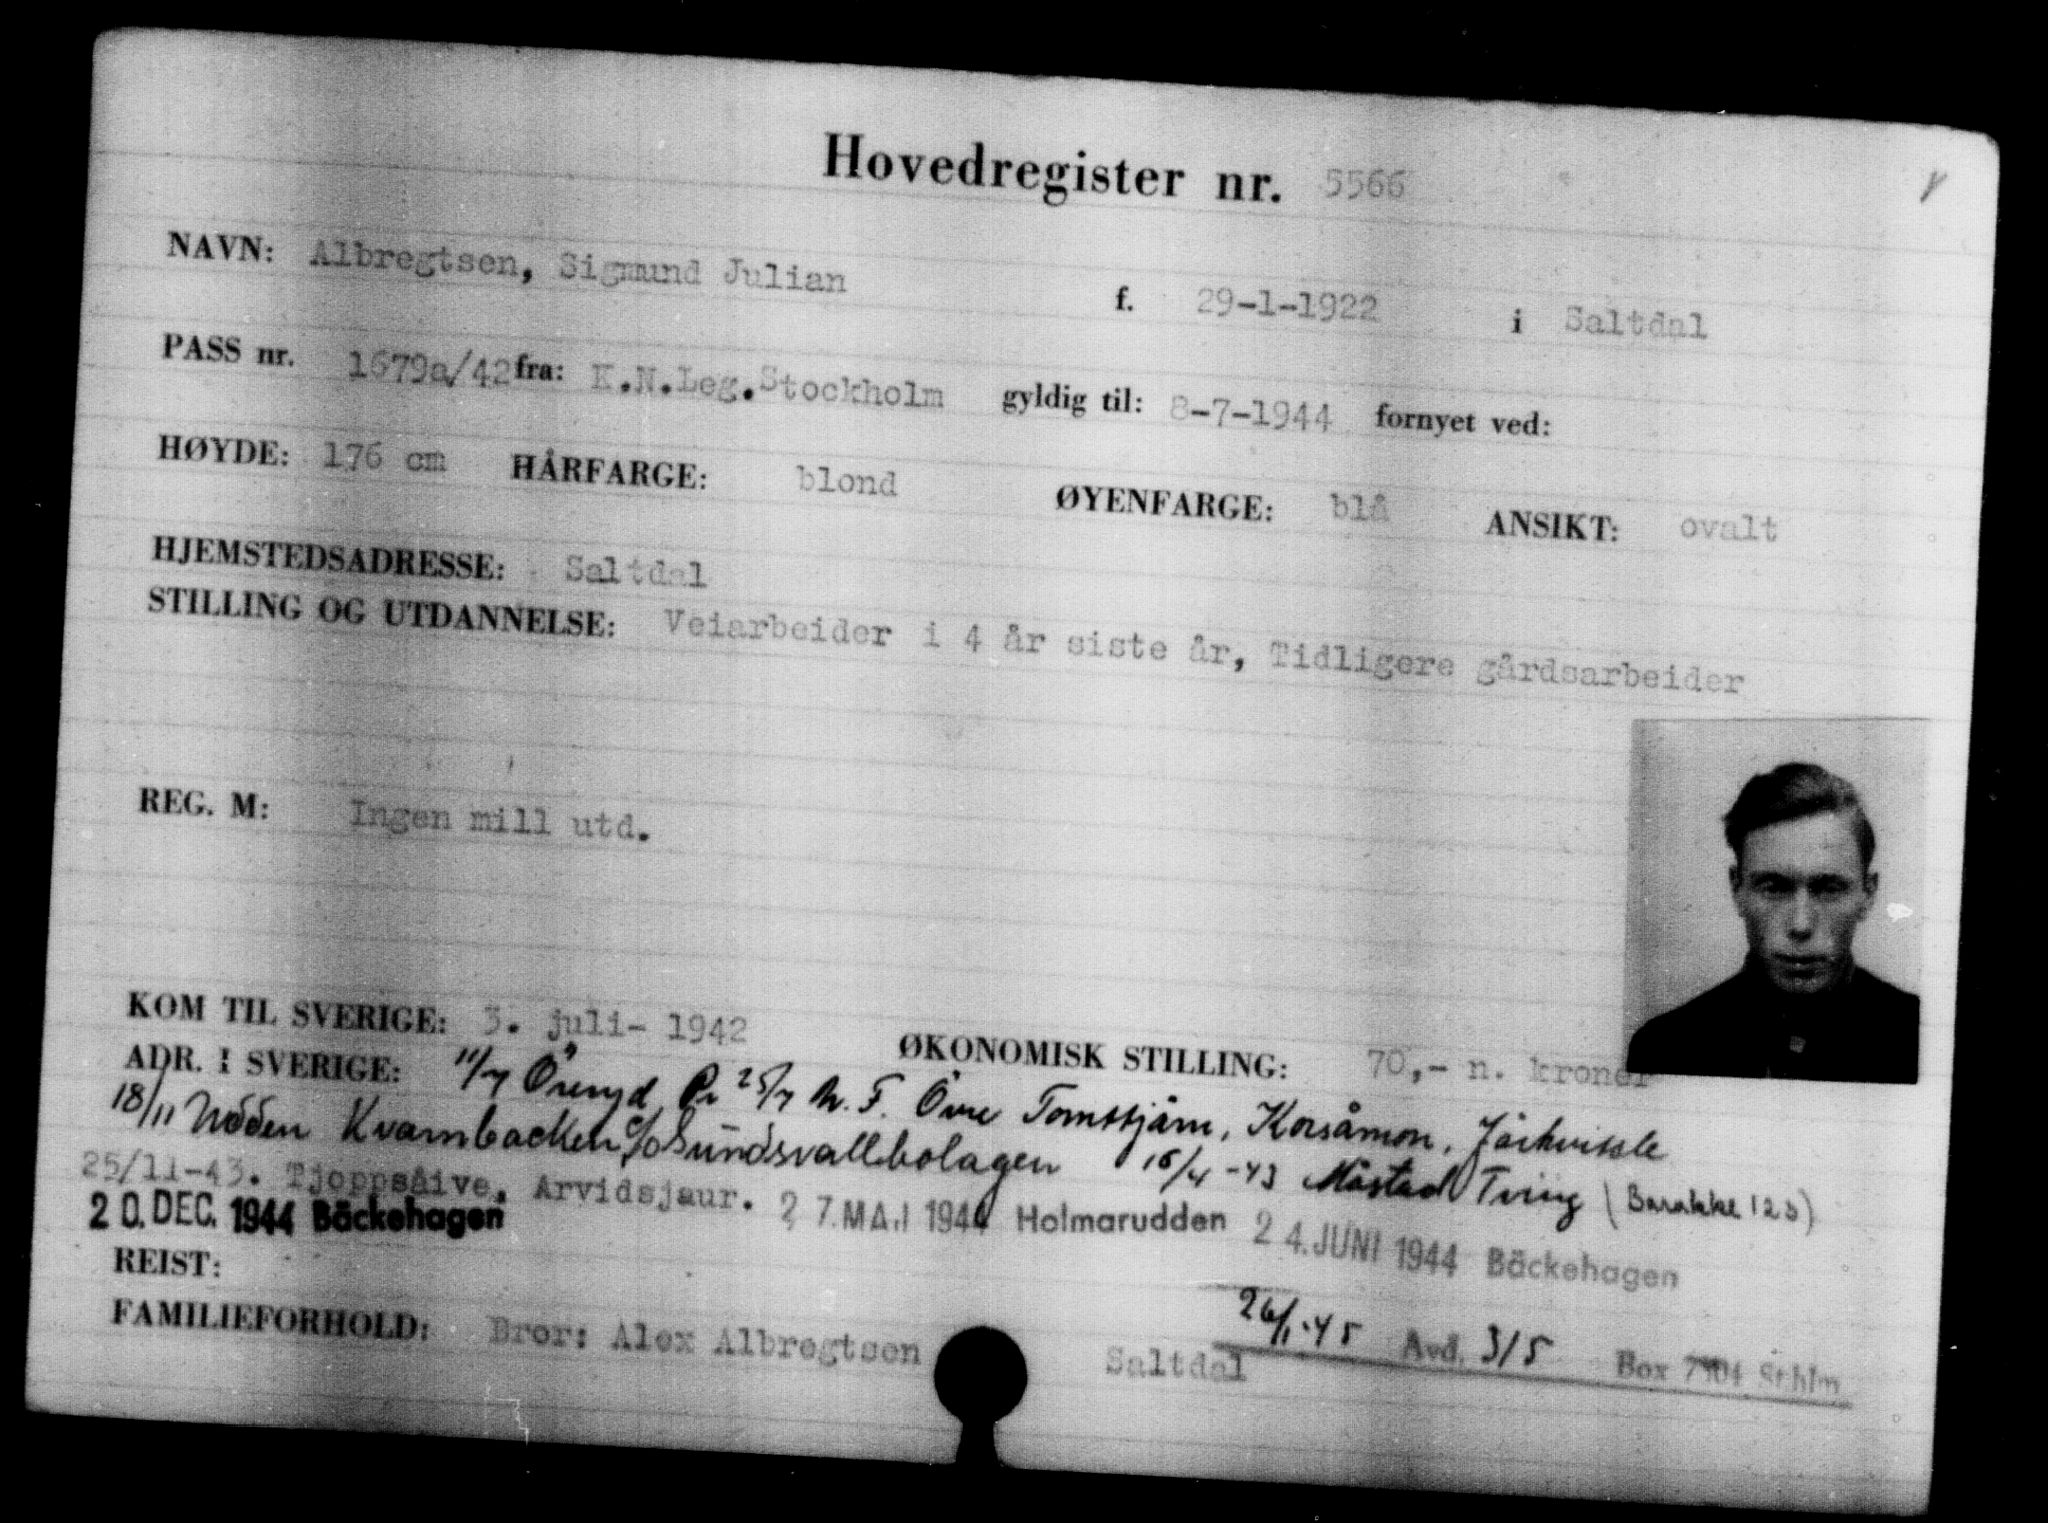 Hovedregister nr. 5566
NAVN: Albregtsen, Sigmund Julian f. 29-1-1922 i Saltdal
PASS nr. 1679a/42 fra: K.N.Leg.Stockholm gyldig til: 8-7-1944 fornyet ved:
HØYDE: 176 cm HÅRFARGE: blond ØYENFARGE: blå ANSIKT: ovalt
HJEMSTEDSADRESSE: Saltdal
STILLING OG UTDANNELSE: Veiarbeider i 4 år siste år, Tidligere gårdsarbeider
REG. M: Ingen mill utd.
KOM TIL SVERIGE: 3. juli- 1942 ØKONOMISK STILLING: 70,- n. kroner
ADR. I SVERIGE: 11/7 Öreryd 25/7 Övre Tomstjärn, Korsåmon, Järkvissle
18/11 Nödden Kvarnbacken c/o Sundsvallbolagen 15/4-43 Måstad Tving (Barakke 123)
25/11-43. Tjoppsåive, Arvidsjaur. 27.MAJ 1944 Holmarudden 24.JUNI 1944 Bäckehagen
20.DEC. 1944 Bäckehagen
REIST:
26/1-45 Avd. 3/5 Box 7404 Sthlm
FAMILIEFORHOLD: Bror: Alex Albregtsen Saltdal